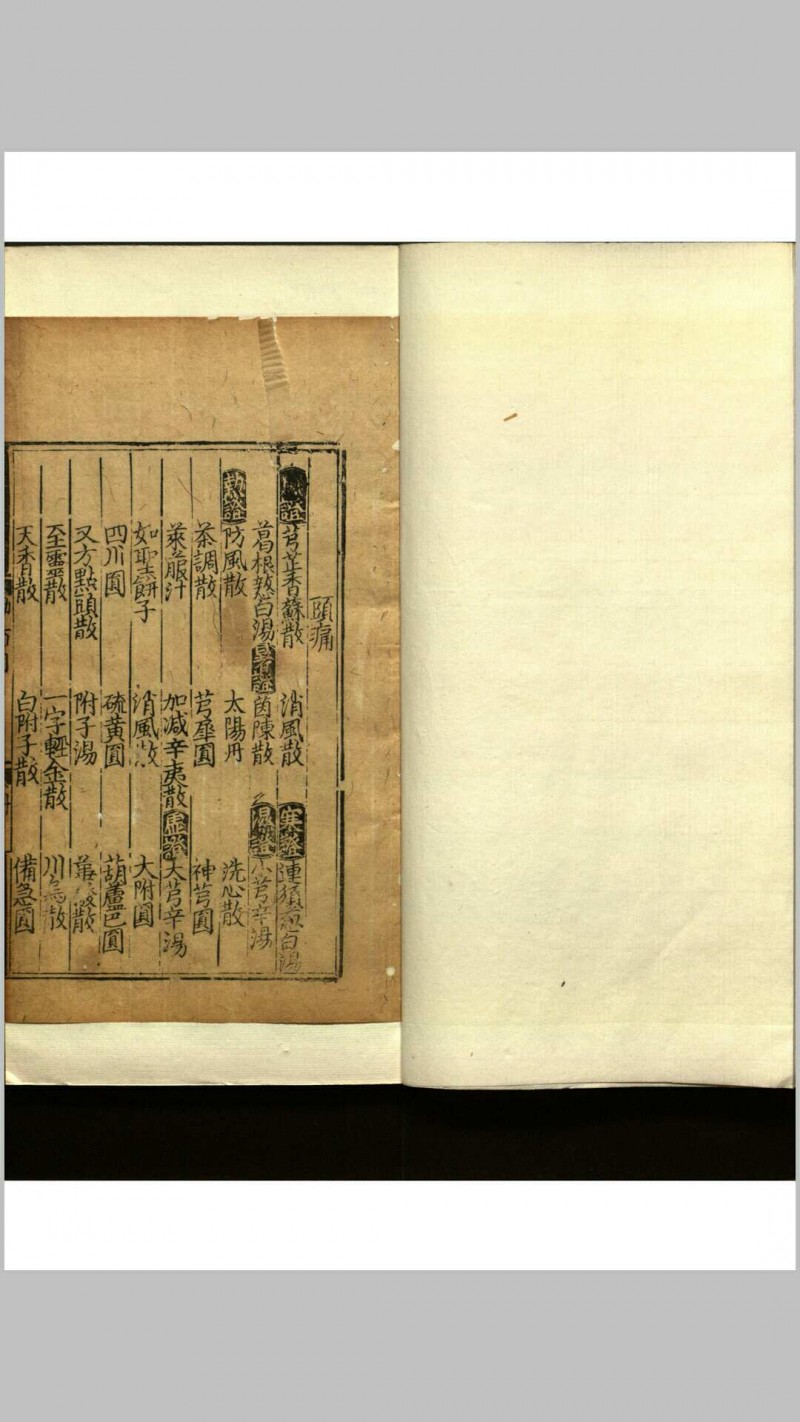 頭痛
風證 芎芷香蘇散 消風散 寒證 連鬚葱白湯
葛根葱白湯 暑證 茵陳散 濕證 小芎辛湯
熱證 防風散 太陽丹 洗心散
茶調散 芎犀圓 神芎圓
萊菔汁 加減辛夷散 虛證 大芎辛湯
如聖餅子 消風散 大附圓
四川圓 硫黄圓 葫蘆巴圓
又方點頭散 附子湯 散
至靈散 一字輕金散 川烏散
天香散 白附子散 備急圓